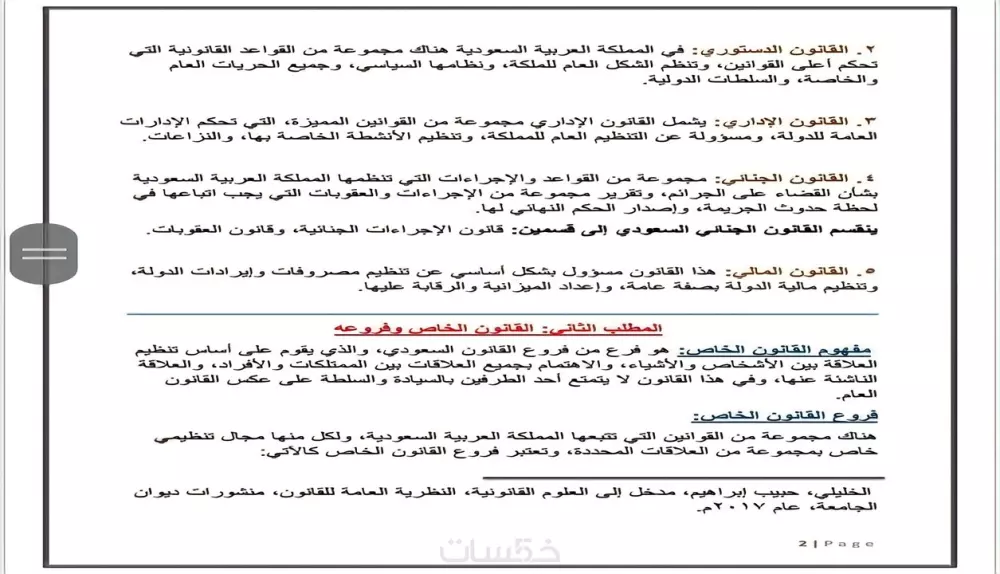 ٢. القانون الدستوري: في المملكة العربية السعودية هناك مجموعة من القواعد القانونية التي
تحكم أعلى القوانين، وتنظم الشكل العام للملكة، ونظامها السياسي، وجميع الحريات العام
والخاصة، والسلطات الدولية.
٣. القانون الإداري: يشمل القانون الإداري مجموعة من القوانين المميزة، التي تحكم الإدارات
العامة للدولة، ومسؤولة عن التنظيم العام للمملكة، وتنظيم الأنشطة الخاصة بها، والنزاعات.
٤. القانون الجنائي: مجموعة من القواعد والإجراءات التي تنظمها المملكة العربية السعودية
بشأن القضاء على الجرائم، وتقرير مجموعة من الإجراءات والعقوبات التي يجب اتباعها في
لحظة حدوث الجريمة، وإصدار الحكم النهائي لها.
ينقسم القانون الجنائي السعودي إلى قسمين: قانون الإجراءات الجنائية، وقانون العقوبات.
٥. القانون المالي: هذا القانون مسؤول بشكل أساسي عن تنظيم مصروفات وإيرادات الدولة،
وتنظيم مالية الدولة بصفة عامة، وإعداد الميزانية والرقابة عليها.
المطلب الثاني: القانون الخاص وفروعه
مفهوم القانون الخاص: هو فرع من فروع القانون السعودي، والذي يقوم على أساس تنظيم
العلاقة بين الأشخاص والأشياء، والاهتمام بجميع العلاقات بين الممتلكات والأفراد، والعلاقة
الناشئة عنها، وفي هذا القانون لا يتمتع أحد الطرفين بالسيادة والسلطة على عكس القانون
العام.
فروع القانون الخاص:
هناك مجموعة من القوانين التي تتبعها المملكة العربية السعودية، ولكل منها مجال تنظيمي
خاص بمجموعة من العلاقات المحددة، وتعتبر فروع القانون الخاص كالآتي:
الخليلي، حبيب إبراهيم، مدخل إلى العلوم القانونية، النظرية العامة للقانون، منشورات ديوان
الجامعة، عام ٢٠١٧م.
2 | Page
خمسات